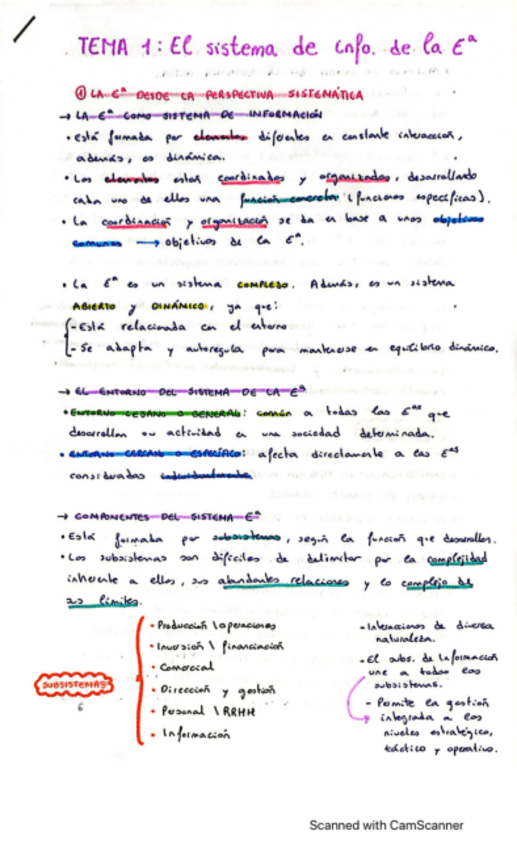 TEMA 1: El sistema de info. de la Eª
① LA Eª DESDE LA PERSPECTIVA SISTEMÁTICA
→ LA Eª COMO SISTEMA DE INFORMACIÓN
• Está formada por elementos diferentes en constante interacción,
además, es dinámica.
• Los elementos están coordinados y organizados, desarrollando
cada uno de ellos una función concreta (funciones específicas).
• La coordinación y organización se da en base a unos objetivos
comunes → objetivos de la Eª.
• La Eª es un sistema COMPLEJO. Además, es un sistema
ABIERTO y DINÁMICO, ya que:
- Está relacionada con el entorno
- Se adapta y autoregula para mantenerse en equilibrio dinámico.
→ EL ENTORNO DEL SISTEMA DE LA Eª
• ENTORNO LEJANO O GENERAL: común a todas las Eªs que
desarrollan su actividad en una sociedad determinada.
• ENTORNO CERCANO O ESPECÍFICO: afecta directamente a las Eªs
consideradas individualmente
→ COMPONENTES DEL SISTEMA Eª
• Está formada por subsistemas, según la función que desarrollan.
• Los subsistemas son difíciles de delimitar por la complejidad
inherente a ellos, sus abundantes relaciones y lo complejo de
sus límites.
SUBSISTEMAS
6
• Producción \ operaciones
• Inversión \ financiación
• Comercial
• Dirección y gestión
• Personal \ RRHH
• Información
- Interacciones de diversa
naturaleza.
- El subs. de Información
une a todos los
subsistemas.
- Permite la gestión
integrada a los
niveles estratégico,
táctico y operativo.
Scanned with CamScanner